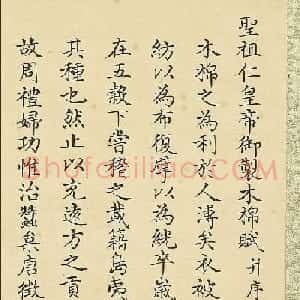 聖祖仁皇帝御製木棉賦并序
木棉之為利於人溥矣衣被
紡以為布復擘以為絖卒歲
在五穀下嘗稽之載籍島夷
其種也然止以充遠方之貢
故周禮婦功惟治蠶枲唐徵
Shufaziliao.com